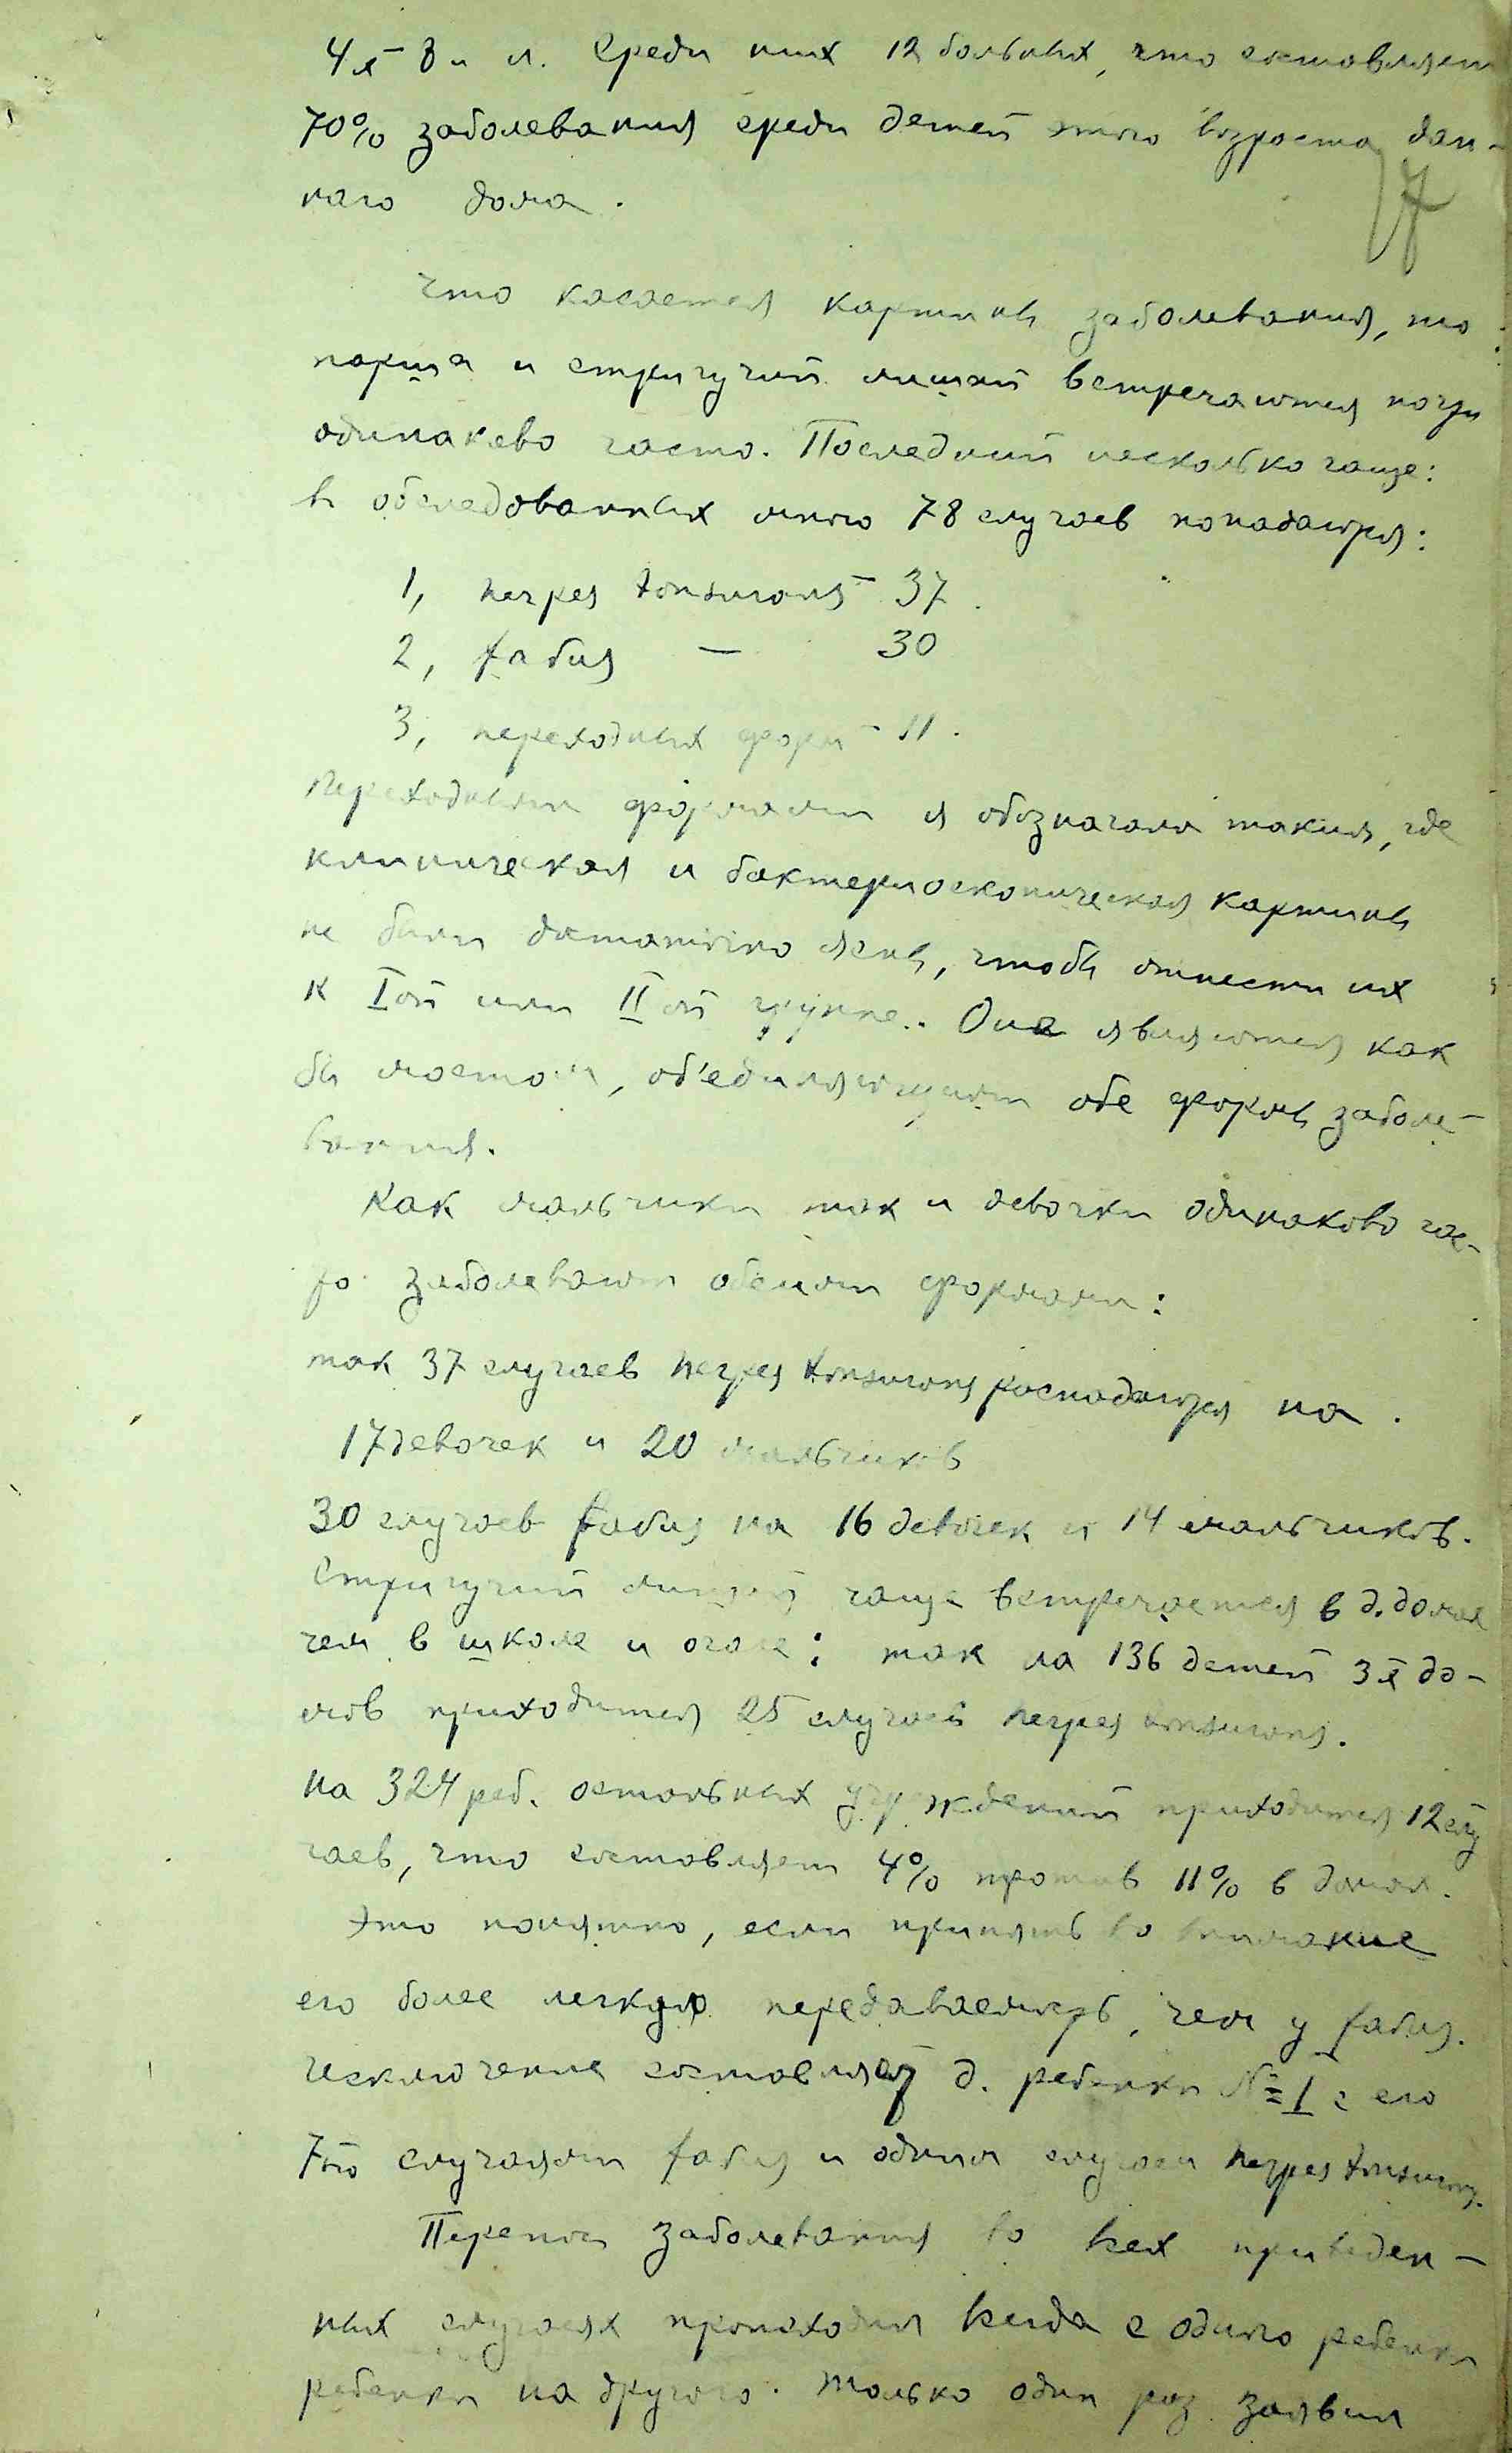 4х - 8 и л. Среди них 12 больных, что составляет
70% заболевания среди детей этого возраста дан-
наго дома.
17
Что касается картины заболевания, то
парша и стригучий лишай встречаются почти
одинаково часто. Последний несколько чаще:
в обследованных мною 78 случаев попадаются:
1, herpes tonsurans - 37.
2, favus — 30
3, переходных форм - 11.
Переходными формами я обозначала такия, где
клиническая и бактериоскопическая картины
не были достаточно ясны, чтобы отнести их
к Iой или IIой группе. Оне являются как
бы мостом, об'единяющим обе формы заболе-
вания.
Как мальчики так и девочки одинаково час-
то заболевают обеими формами:
так 37 случаев herpes tonsurans распадаются на.
17 девочек и 20 мальчиков
30 случаев favus на 16 девочек и 14 мальчиков.
Стригучий лишай чаще встречается в д. домах
чем в школе и очаге: так на 136 детей 3х до-
мов приходится 25 случаев herpes tonsurans.
на 324 реб. остальных учреждений приходится 12 слу
чаев, что составляет 4% против 11% в домах.
Это понятно, если принять во внимание
его более легкую передаваемость, чем у favus.
Исключение составляет д. ребенка № I с его
7ю случаями favus и одним случаем herpes tonsurans.
Перенос заболевания во всех приведен-
ных случаях происходил всегда с одного ребенка
ребенка на другого. Только один раз заявил